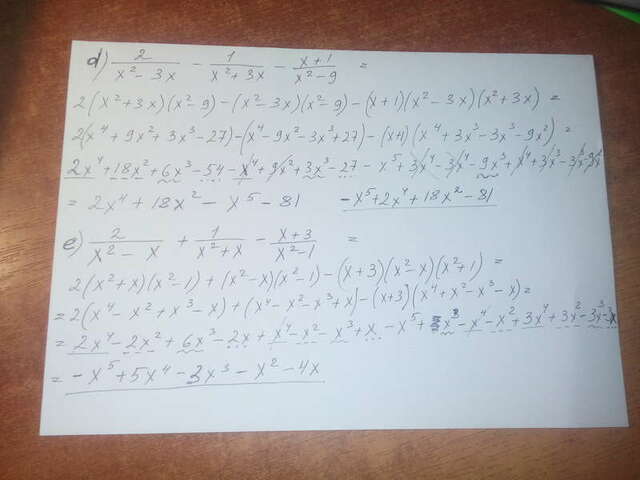 d) 2/(x²-3x) - 1/(x²+3x) - (x+1)/(x²-9) =
2(x²+3x)(x²-9)-(x²-3x)(x²-9)-(x+1)(x²-3x)(x²+3x) =
2(x⁴+9x²+3x³-27)-(x⁴-9x²-3x³+27)-(x+1)(x⁴+3x³-3x³-9x²) =
2x⁴+18x²+6x³-54-x⁴+9x²+3x³-27-x⁵+3x⁴-3x⁴-9x³+x⁴+3x³-3x³-9x²
= 2x⁴+18x²-x⁵-81 -x⁵+2x⁴+18x²-81
e) 2/(x²-x) + 1/(x²+x) - (x+3)/(x²-1) =
2(x²+x)(x²-1)+(x²-x)(x²-1)-(x+3)(x²-x)(x²+1) =
= 2(x⁴-x²+x³-x)+(x⁴-x²-x³+x)-(x+3)(x⁴+x²-x³-x) =
= 2x⁴-2x²+6x³-2x+x⁴-x²-x³+x-x⁵+x³-x⁴-x²+3x⁴+3x²-3x³-3x
= -x⁵+5x⁴-3x³-x²-4x